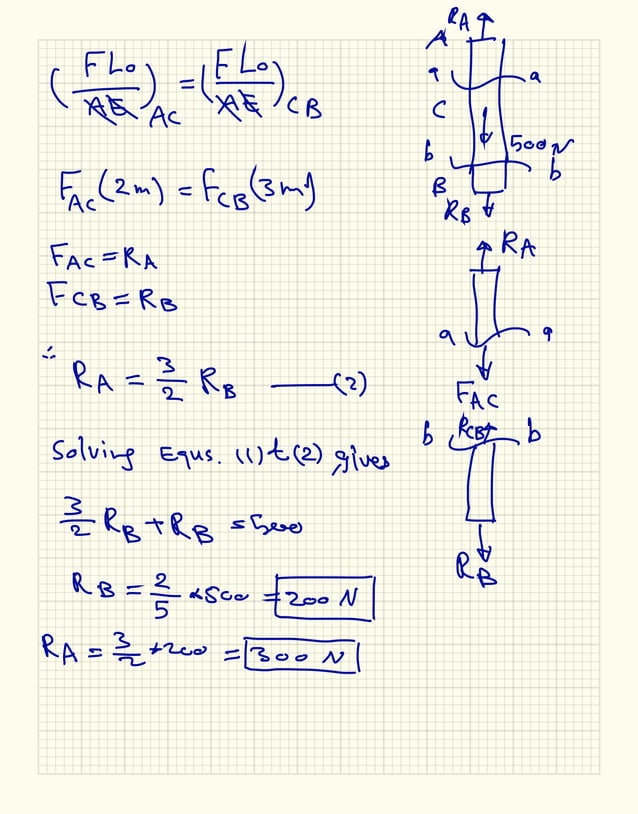 (FL₀/AE)AC = (FL₀/AE)CB
FAC(2m) = FCB(3m)
FAC = RA
FCB = RB
∴ RA = 3/2 RB —(2)
Solving Equs. (1) + (2) gives
3/2 RB + RB = 500
RB = 2/5 × 500 = 200 N
RA = 3/2 × 200 = 300 N
RA
A
a a
C
500N
b b
B
RB
RA
a a
FAC
b RCB b
RB